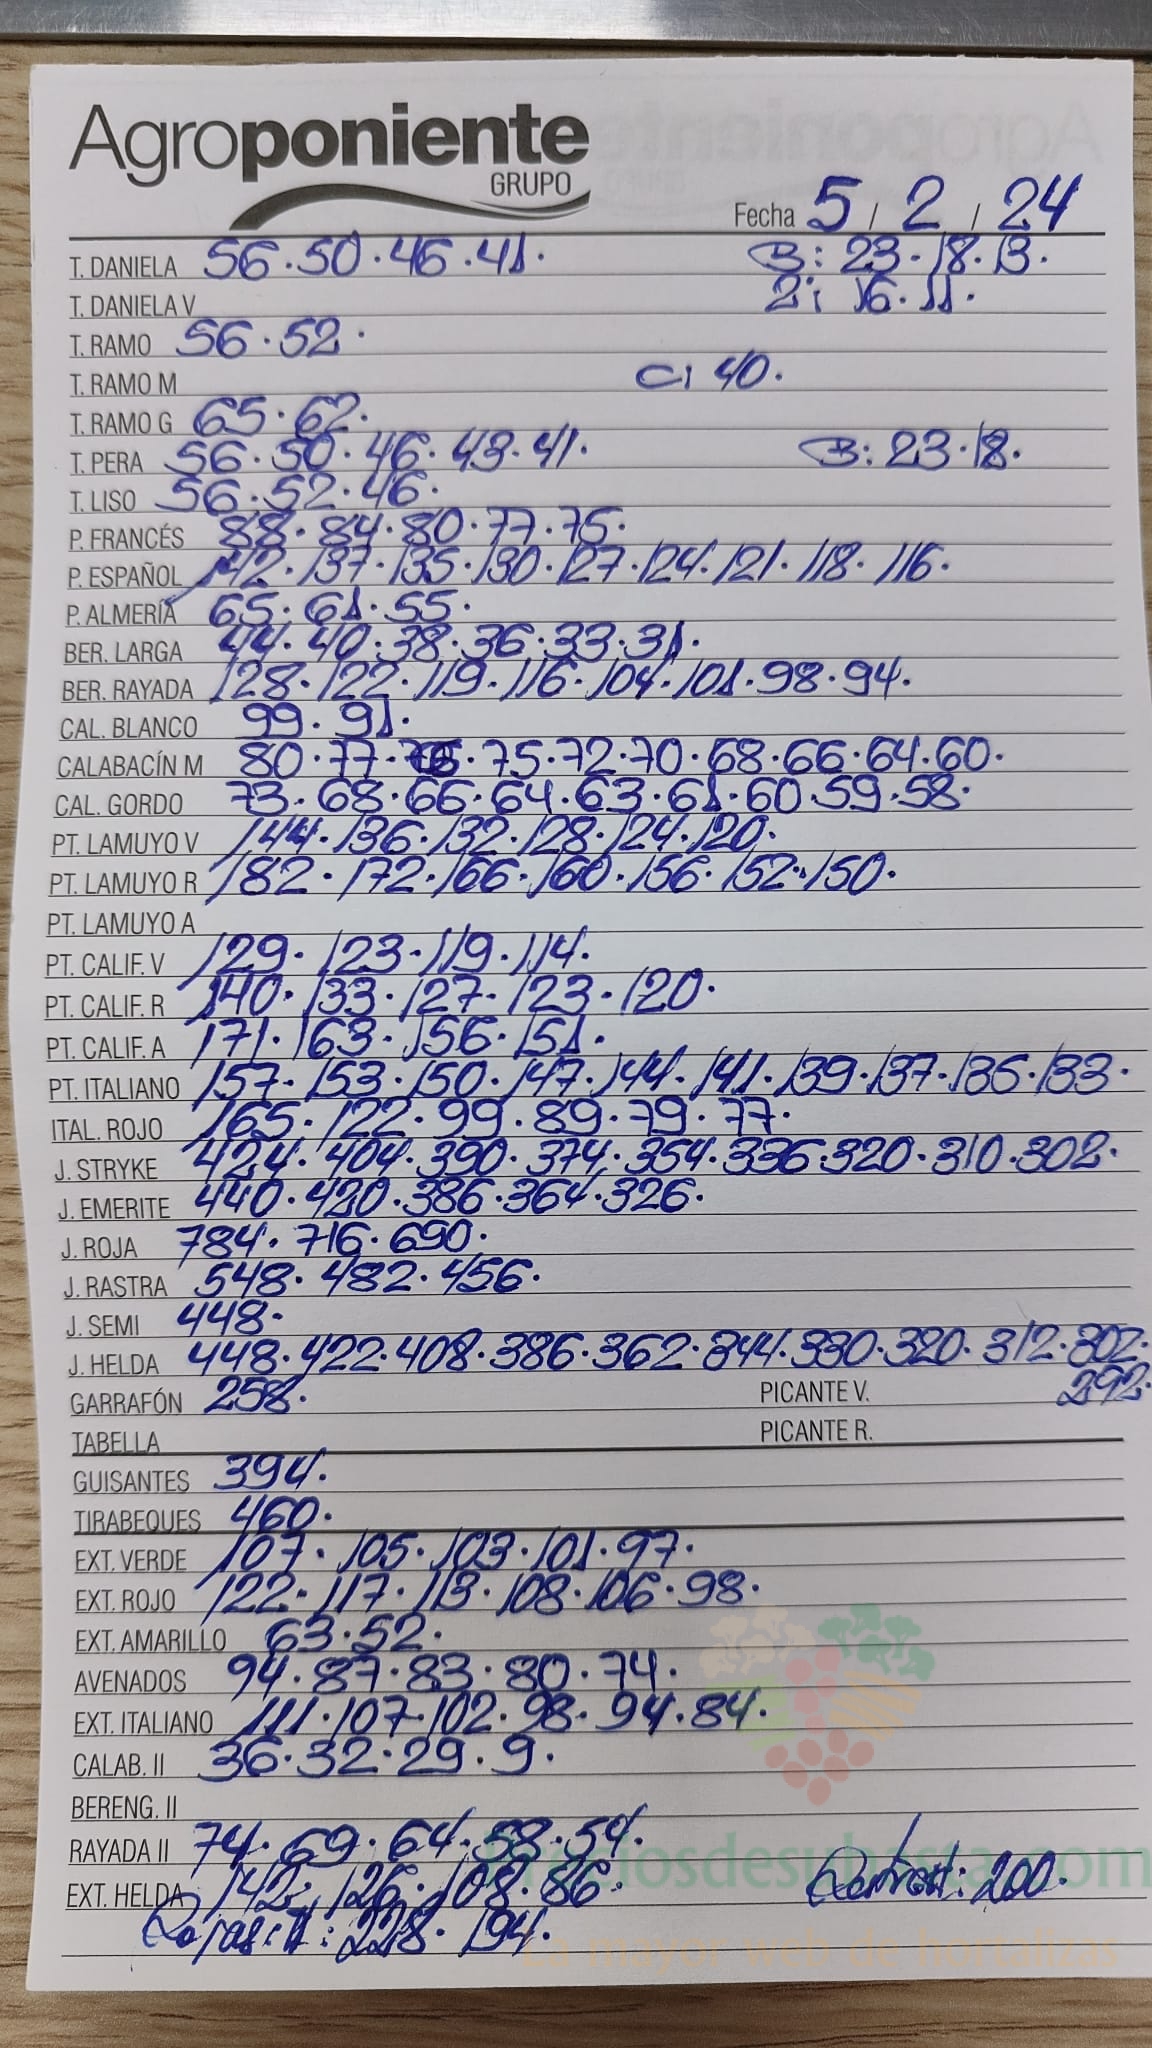 Agroponiente
GRUPO
Fecha 5 / 2 / 24
T. DANIELA 56.50.46.41. B: 23.18.13.
T. DANIELA V 2: 16.11.
T. RAMO 56.52.
T. RAMO M C: 40.
T. RAMO G 65.62.
T. PERA 56.50.46.43.41. B: 23.18.
T. LISO 56.52.46.
P. FRANCÉS 88.84.80.77.75.
P. ESPAÑOL 142.137.135.130.127.124.121.118.116.
P. ALMERÍA 65.61.55.
BER. LARGA 44.40.38.36.33.31.
BER. RAYADA 128.122.119.116.104.101.98.94.
CAL. BLANCO 99.91.
CALABACÍN M 80.77.76.75.72.70.68.66.64.60.
CAL. GORDO 73.68.66.64.63.61.60.59.58.
PT. LAMUYO V 144.136.132.128.124.120.
PT. LAMUYO R 182.172.166.160.156.152.150.
PT. LAMUYO A
PT. CALIF. V 129.123.119.114.
PT. CALIF. R 140.133.127.123.120.
PT. CALIF. A 171.163.156.151.
PT. ITALIANO 157.153.150.147.144.141.139.137.135.133.
ITAL. ROJO 165.122.99.89.79.77.
J. STRYKE 424.404.390.374.354.336.320.310.302.
J. EMERITE 440.420.386.364.326.
J. ROJA 784.716.690.
J. RASTRA 548.482.456.
J. SEMI 448.
J. HELDA 448.422.408.386.362.344.330.320.312.302.
GARRAFÓN 258. PICANTE V. 292.
TABELLA PICANTE R.
GUISANTES 394.
TIRABEQUES 460.
EXT. VERDE 107.105.103.101.97.
EXT. ROJO 122.117.113.108.106.98.
EXT. AMARILLO 63.52.
AVENADOS 94.87.83.80.74.
EXT. ITALIANO 111.107.102.98.94.84.
CALAB. II 36.32.29.9.
BERENG. II
RAYADA II 74.69.64.58.54.
EXT. HELDA 142.126.108.86. : 200.
Rojas: II: 228.194.
La mayor web de hortalizas